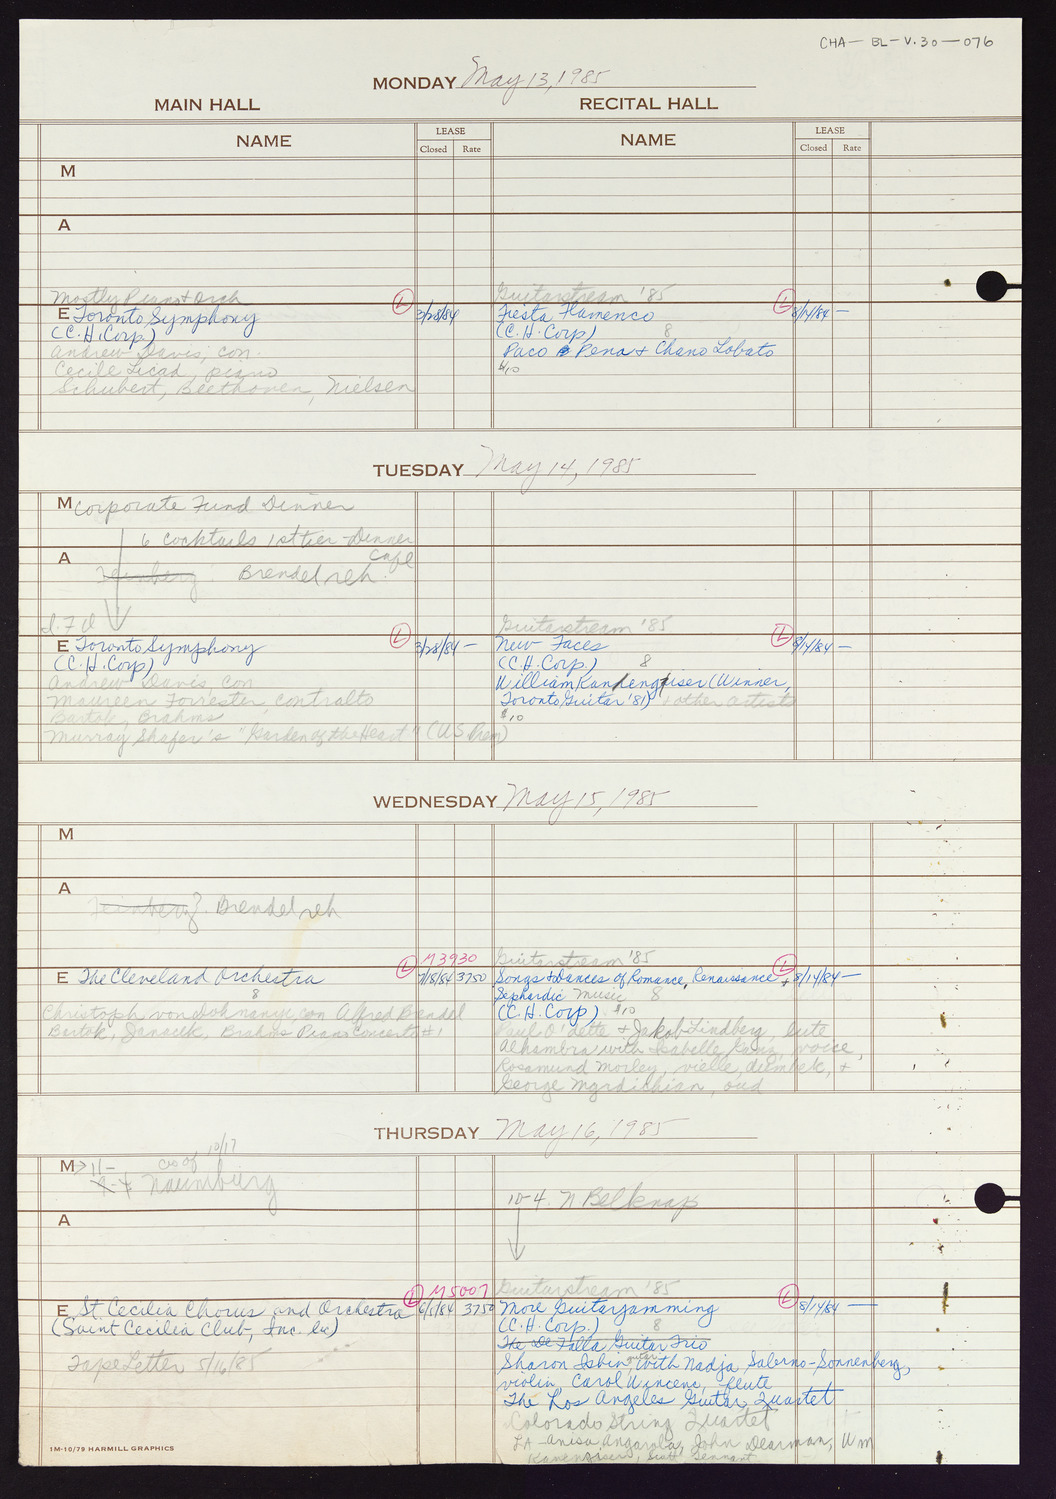 CHA-BL-V.30-076
MONDAY May 13, 1985
MAIN HALL RECITAL HALL
NAME LEASE NAME LEASE
Closed Rate Closed Rate
M
A
Mostly Piano + Orch
E Toronto Symphony L 3/28/84
(C.H. Corp)
Andrew Davis, con.
Cecile Licad, piano
Schubert, Beethoven, Nielsen
Guitarstream '85
Fiesta Flamenco L 8/14/84 —
(C.H. Corp) 8
Paco Pena + Chano Lobato
$10
TUESDAY May 14, 1985
M Corporate Fund Dinner
6 Cocktails 1st tier - Dinner
Cafe
A Feinberg Brendel reh.
E Toronto Symphony L 3/28/84 —
(C.H. Corp)
Andrew Davis, con
Maureen Forrester, contralto
Bartok, Brahms
Murray Shafer's "Garden of the Heart" (US Prem)
Guitarstream '85
New Faces L 8/14/84 —
(C.H. Corp.) 8
William Kanhengiser (Winner,
Toronto Guitar '81) + other artists
$10
WEDNESDAY May 15, 1985
M
A
Feinberg Brendel reh
M3930
E The Cleveland Orchestra L 7/18/84 3750
8
Christoph von Dohnanyi, con Alfred Brendel
Bartok, Janacek, Brahms Piano Concerto #1
Guitarstream '85
Songs + Dances of Romance, Renaissance + L 8/14/84 —
Sephardic Music 8
(C.H. Corp) $10
Paul O'dette + Jakob Lindberg, lute
Alhambra with Isabelle Ganz, voice,
Rosamund Morley, vielle, dumbek, +
George Mgrdichian, oud
THURSDAY May 16, 1985
10/17
M > 11- as of
Naumburg
10-4. N Belknap
A
M5007
E St. Cecilia Chorus and Orchestra L 6/1/84 3750
(Saint Cecilia Club, Inc. lic)
Tape Letter 5/16/85
Guitarstream '85
More Guitarjamming L 8/14/84 —
(C.H. Corp.) 8
The De Falla Guitar Trio
Sharon Isbin, guitar with Nadja Salerno-Sonnenberg,
violin, Carol Wincenc, flute
The Los Angeles Guitar Quartet
Colorado String Quartet
LA - Anisa Angarola, John Dearman, Wm
Kanengiser, Scott Tennant
1M-10/79 HARMILL GRAPHICS